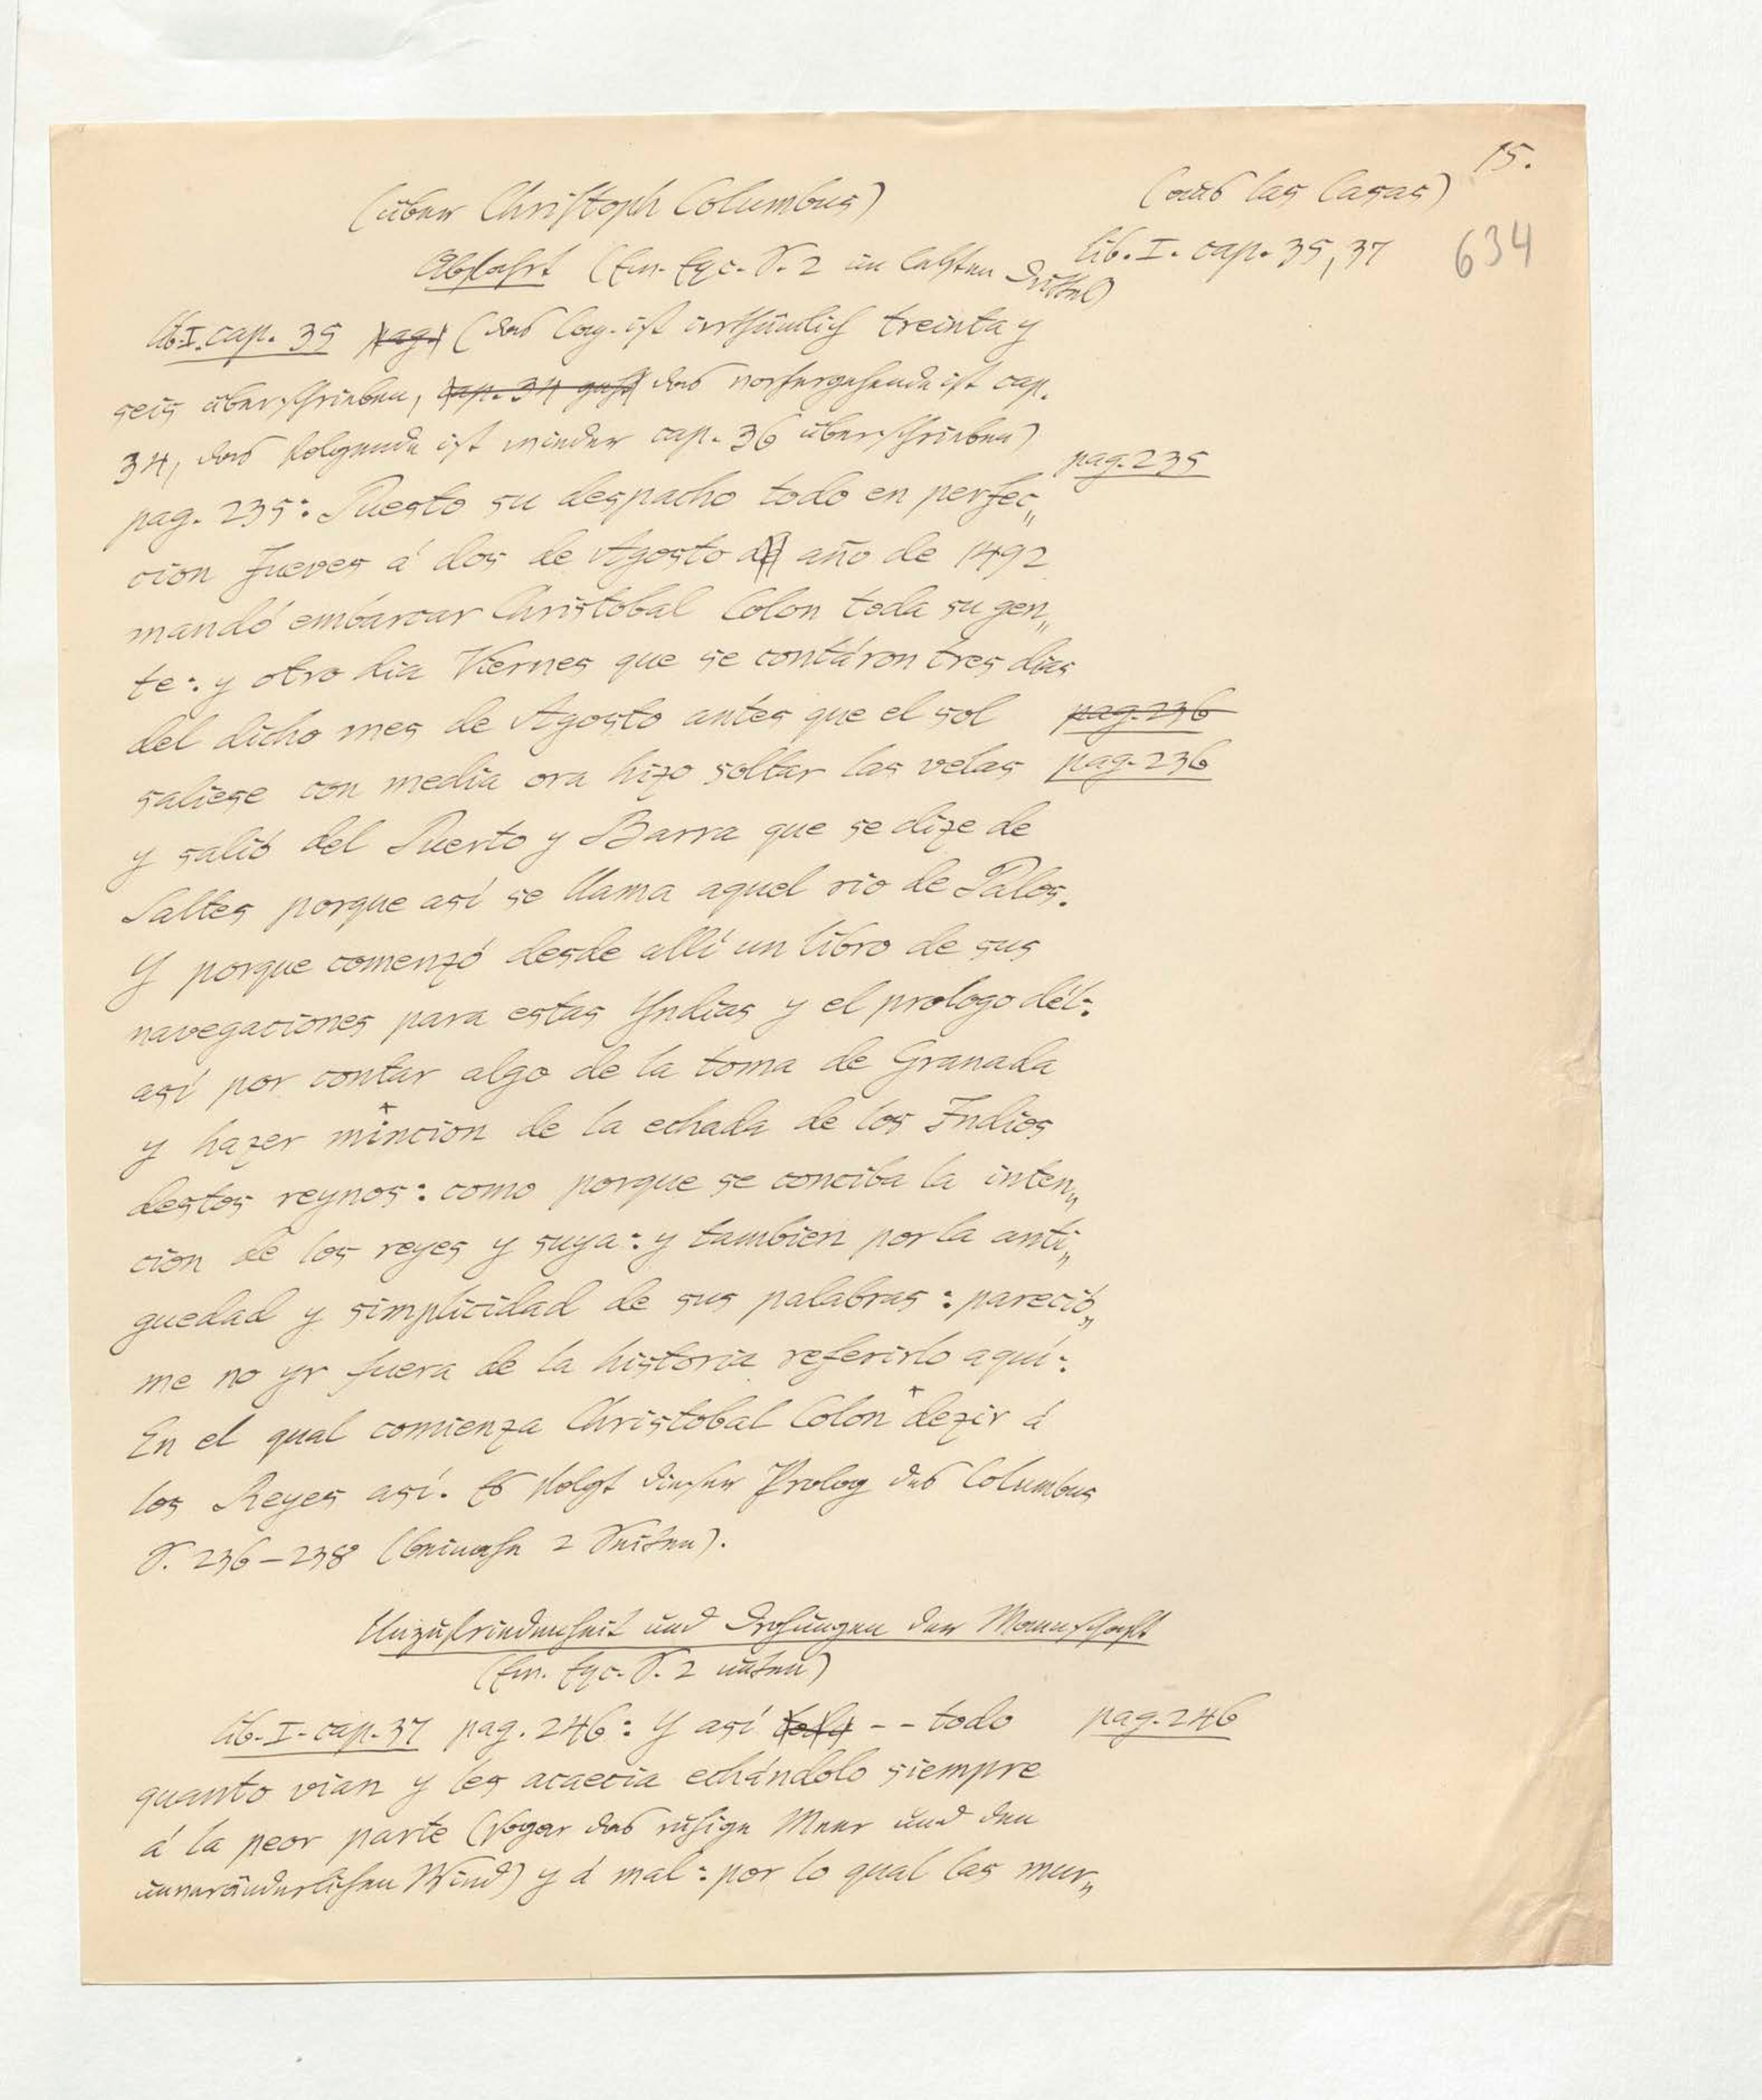 15.
(über Christoph Columbus) (aus las Casas)
Abfahrt (Em. Exc. S. 2 im letzten Drittel) lib. I. cap. 35, 37
634
lib. I. cap. 35 pag. (das Cap. ist irrthümlich treinta y
seis überschrieben, cap. 34 das vorhergehende ist cap.
34, das folgende ist wieder cap. 36 überschrieben)
pag. 235
pag. 235: Puesto su despacho todo en perfec„
cion Jueves á dos de Agosto año de 1492
mandó embarcar Christobal Colon toda su gen„
te: y otro dia Viernes que se contáron tres dias
del dicho mes de Agosto antes que el sol pag. 236
saliese con media ora hizo soltar las velas pag. 236
y salió del Puerto y Barra que se dize de
Saltes porque asi se llama aquel rio de Palos.
Y porque comenzó desde allí un libro de sus
navegaciones para estas Yndias y el prologo dél:
así por contar algo de la toma de Granada
y hazer mincion de la echada de los Indios
destos reynos: como porque se conciba la inten„
cion de los reyes y suya: y tambien por la anti„
guedad y simplicidad de sus palabras: pareció„
me no yr fuera de la historia referirlo aquí:
En el qual comienza Christobal Colon + dezir á
los Reyes así. Es folgt dieser Prolog des Columbus
S. 236–238 (beinahe 2 Seiten).
Unzufriedenheit und Drohungen der Mannschaft
(Em. Exc. S. 2 unten)
lib. I. cap. 37 pag. 246: Y así todo -- todo pag. 246
quanto vian y les acaecia echándolo siempre
á la peor parte (sogar das ruhige Meer und den
unveränderlichen Wind) y á mal: por lo qual las mur„